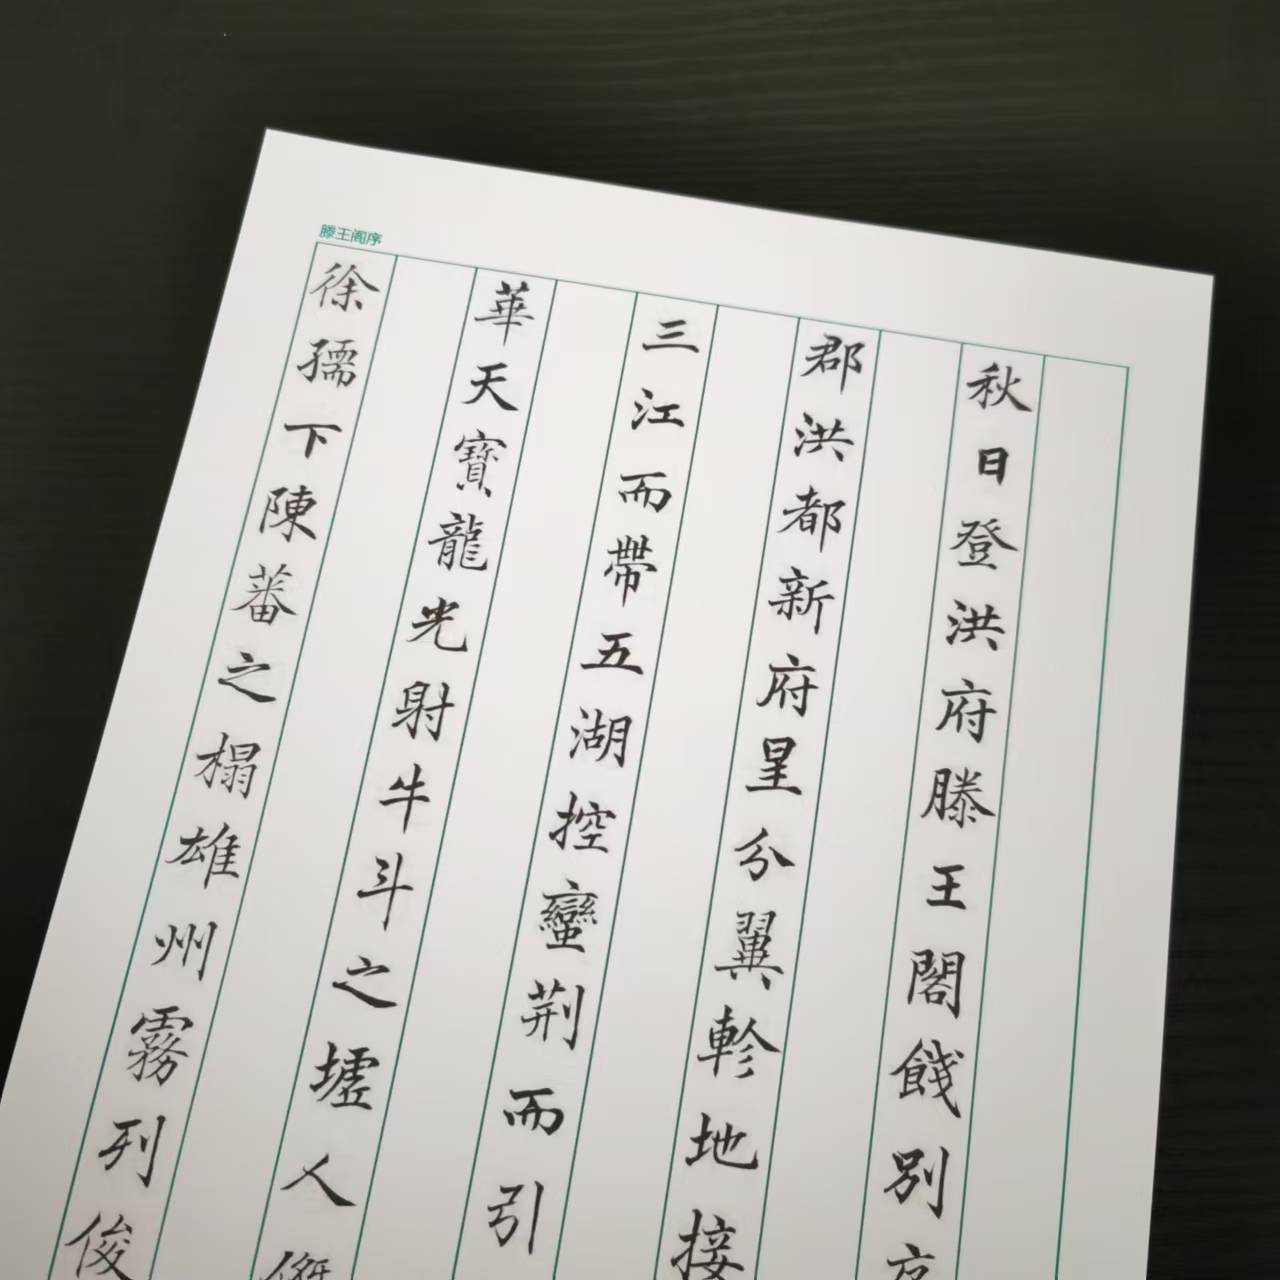 滕王阁序
秋日登洪府滕王閣餞別
郡洪都新府星分翼軫地接
三江而帶五湖控蠻荆而引
華天寶龍光射牛斗之墟人傑
徐孺下陳蕃之榻雄州霧列俊